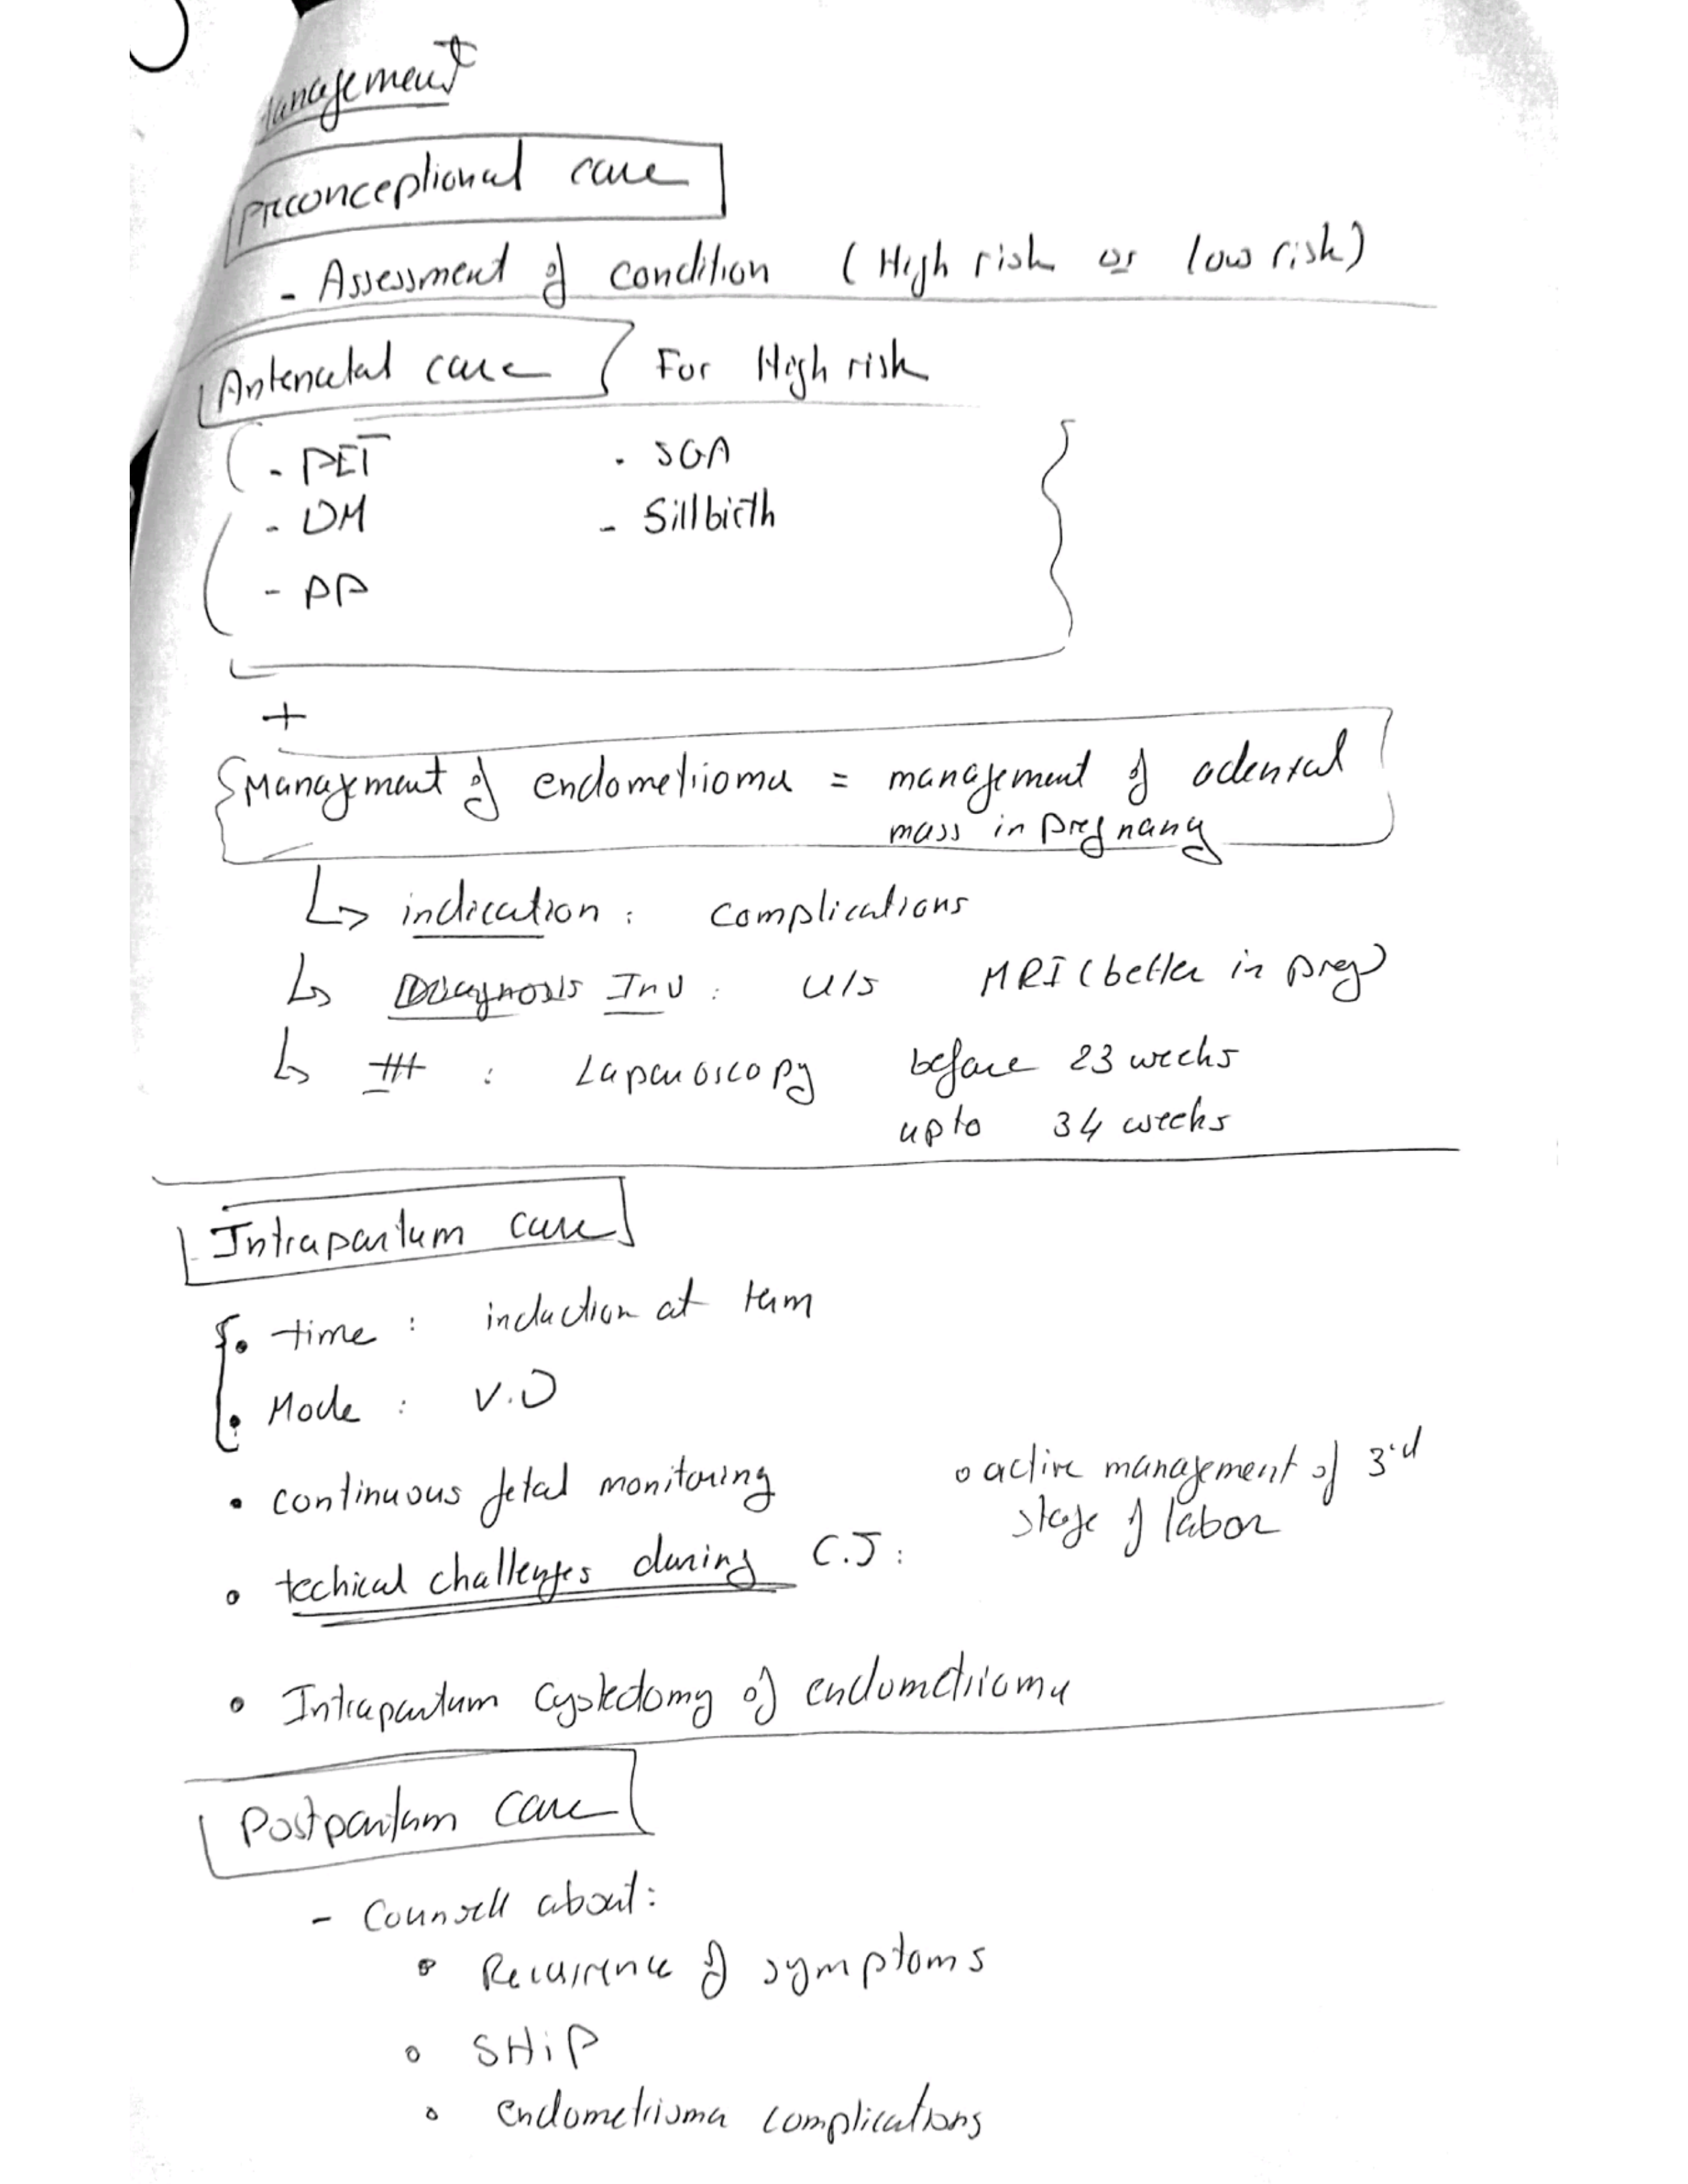 Management
Preconceptional care
- Assessment of condition (High risk or low risk)
Antenatal care For High risk
- PET . SGA
- DM - Sillbirth
- PP
+
Managment of endometrioma = management of adenxal
mass in pregnany
↳ indication : complications
↳ Diagnosis Inv : U/S MRI (better in preg)
↳ ttt : Laparoscopy before 23 weeks
upto 34 weeks
Intrapartum care
• time : induction at term
• Mode : V.D
• continuous fetal monitoring
• active management of 3rd
stage of labor
• techical challenges during C.S :
• Intrapartum cystectomy of endometrioma
Postpartum care
- Counsell about:
• Recurrence of symptoms
• SHiP
• endometrioma complications